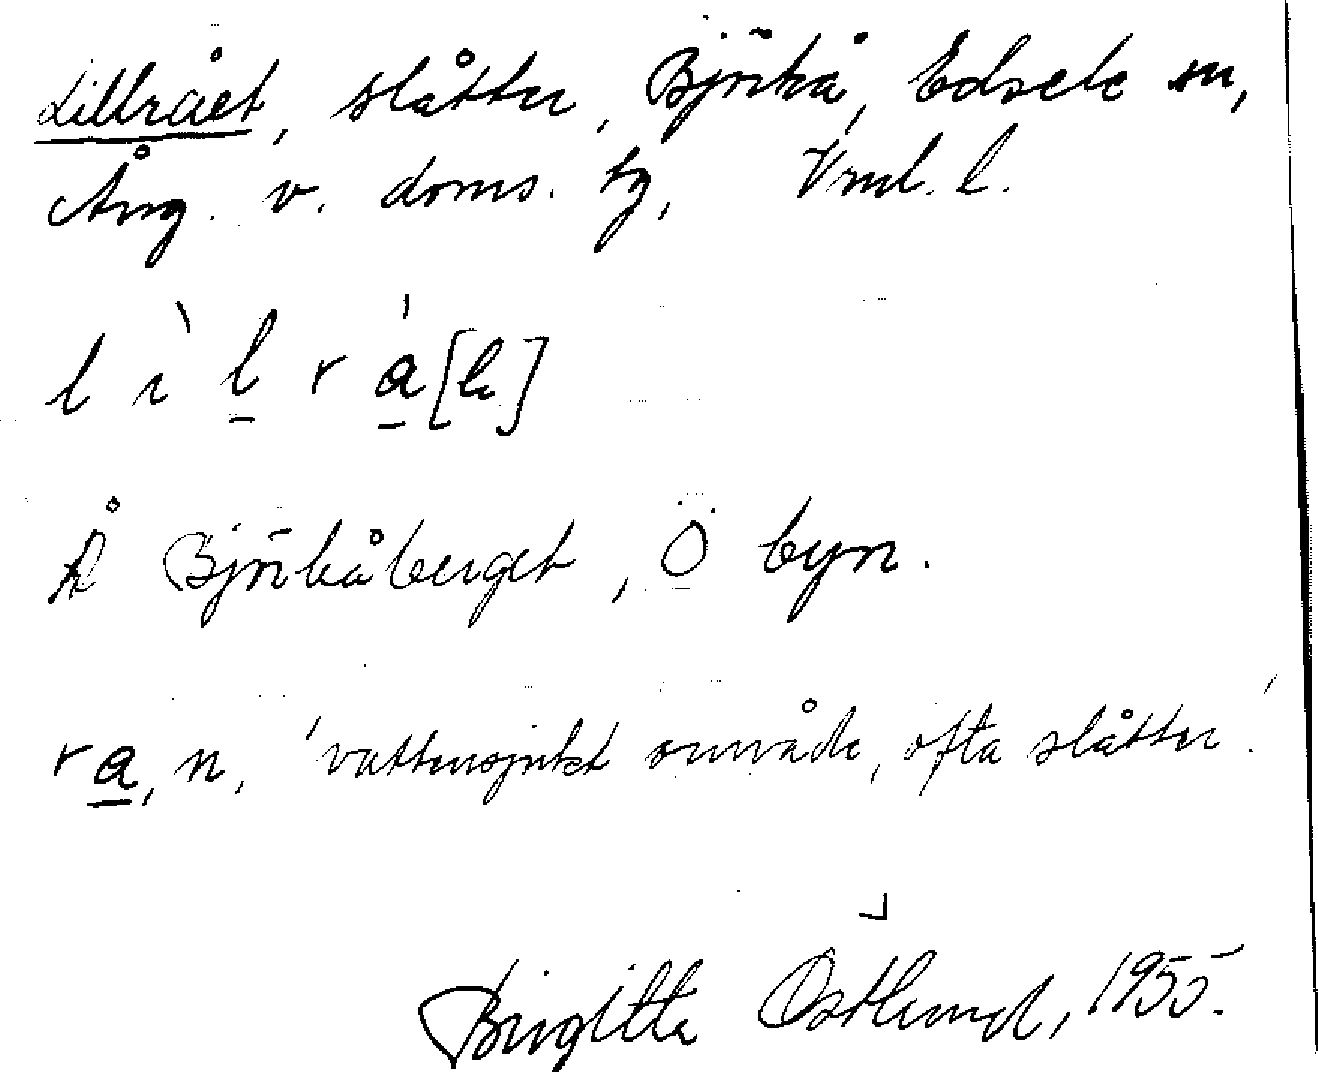 Lillrået, slåtter, Björkå, Edsele sn,
Ång. v. doms. tg, Vnl. l.
l ì l r á [b]
Å Björkåberget, Ö byn.
ra, n, 'vattensjukt område, ofta slåtter.'
Birgitta Östlund, 1955.